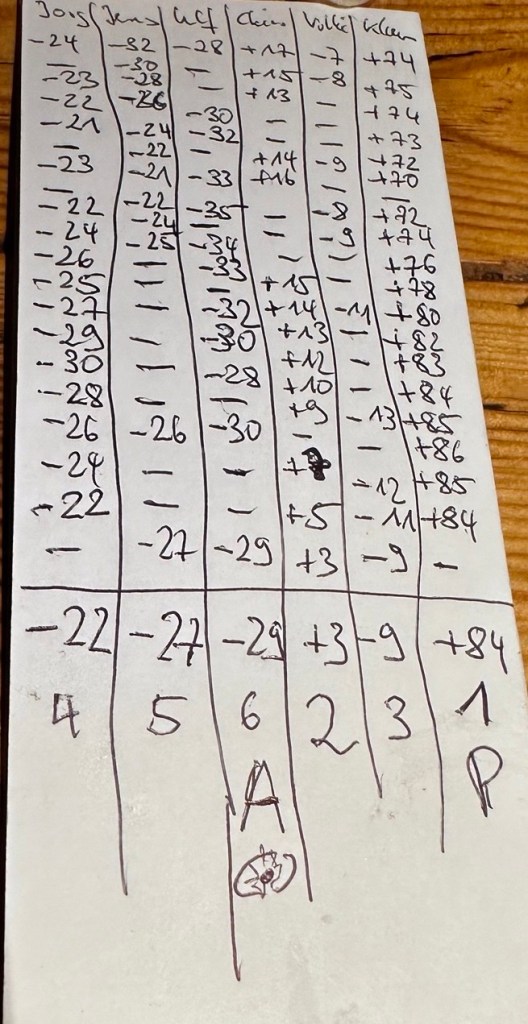 Jörg Jens Ulf Chris Volke
-24 -32 -28 +17 -7 +74
— -30 — +15 -8
-23 -28 — +13 — +75
-22 -26 -30 — — +74
-21 -24 -32 — — +73
— -22 — +14 -9 +72
-23 -21 -33 +16 — +70
— -22 -35 — -8 —
-22 -24 — — -9 +72
-24 -25 -34 — — +74
-26 — -33 — — +76
-25 — — +15 — +78
-27 — -32 +14 -11 +80
-29 — -30 +13 — +82
-30 — -28 +12 — +83
-28 — — +10 — +84
-26 -26 -30 +9 -13 +85
-24 — — — — +86
-22 — — +7 -12 +85
— — — +5 -11 +84
-27 -29 +3 -9 —
-22 -27 -29 +3 -9 +84
4 5 6 2 3 1
A P